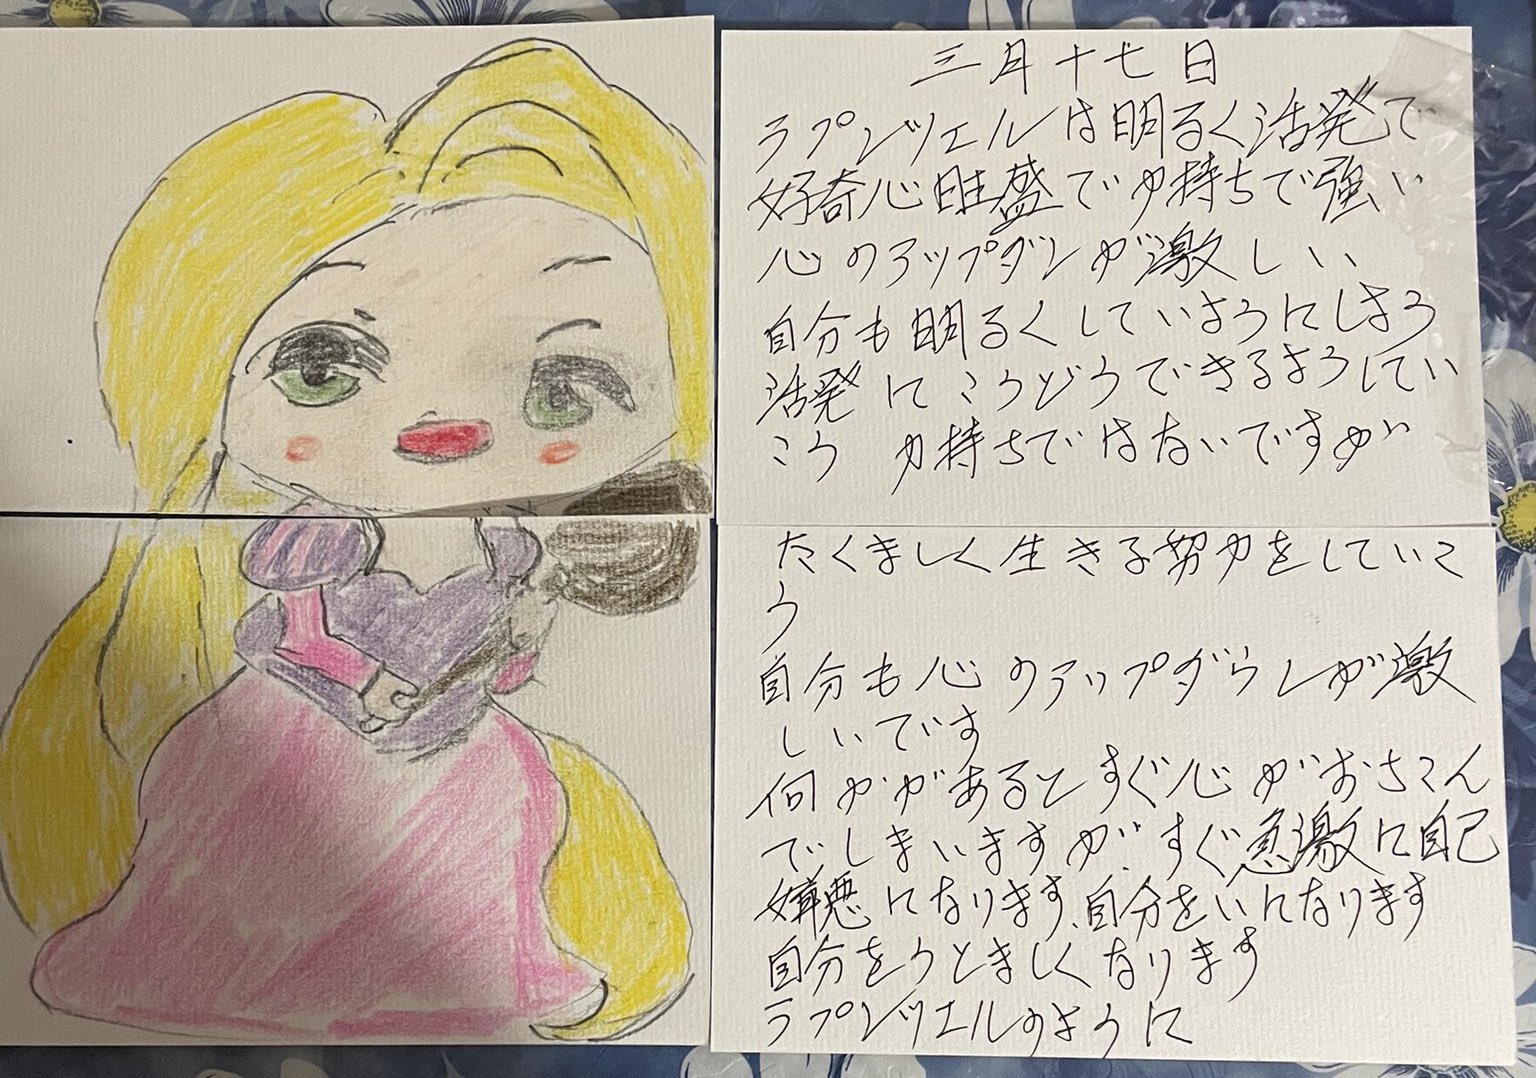 三月十七日
ラプンツェルは明るく活発で
好奇心旺盛で力持ちで強い
心のアップダンが激しい
自分も明るくしていようにしよう
活発にこうどうできるようしてい
こう 力持ちではないですが
たくましく生きる努力をしていこ
う
自分も心のアップダウンが激
しいです
何かがあるとすぐ心がおちこん
でしまいますが、すぐ急激に自己
嫌悪になります、自分をいになります
自分をうとましくなります
ラプンツェルのように